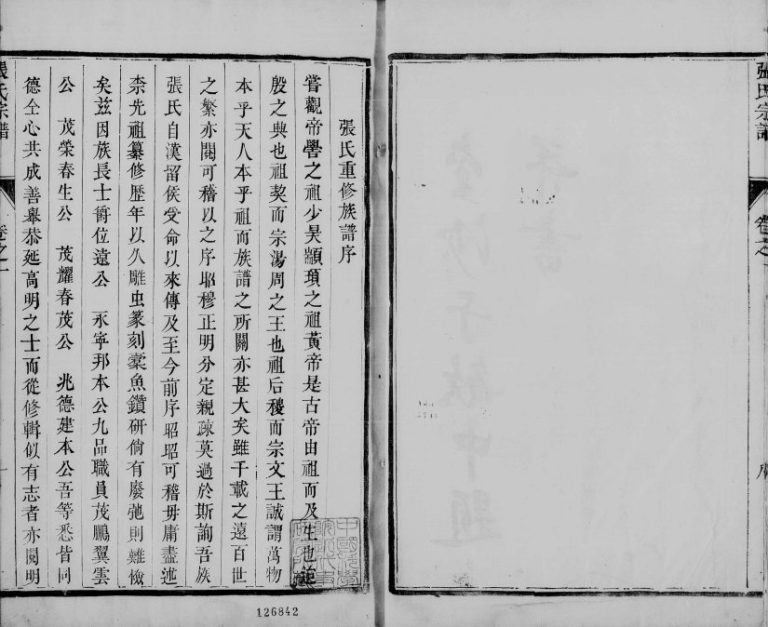 張氏宗譜
卷之一
序
張氏重修族譜序
嘗觀帝嚳之祖少昊顓頊之祖黃帝是古帝由祖而及生也
殷之典也祖契而宗湯周之王也祖后稷而宗文王誠謂萬物
本乎天人本乎祖而族譜之所關亦甚大矣雖千載之遠百世
之繁亦閱可稽以之序昭穆正明分定親疎莫過於斯詢吾族
張氏自漢留侯受命以來傳及至今前序昭昭可稽毋庸盡述
柰先祖纂修歷年以久雕虫篆刻槖魚鑽研倘有廢弛則難
矣兹因族長士衡位遠公 永寧邦本公九品職員茂鵬翼雲
公 茂榮春生公 茂耀春茂公 兆德建本公吾等悉皆同
德仝心共成善舉恭延高明之士而從修輯似有志者亦閱明
張氏宗譜
卷之一
126842